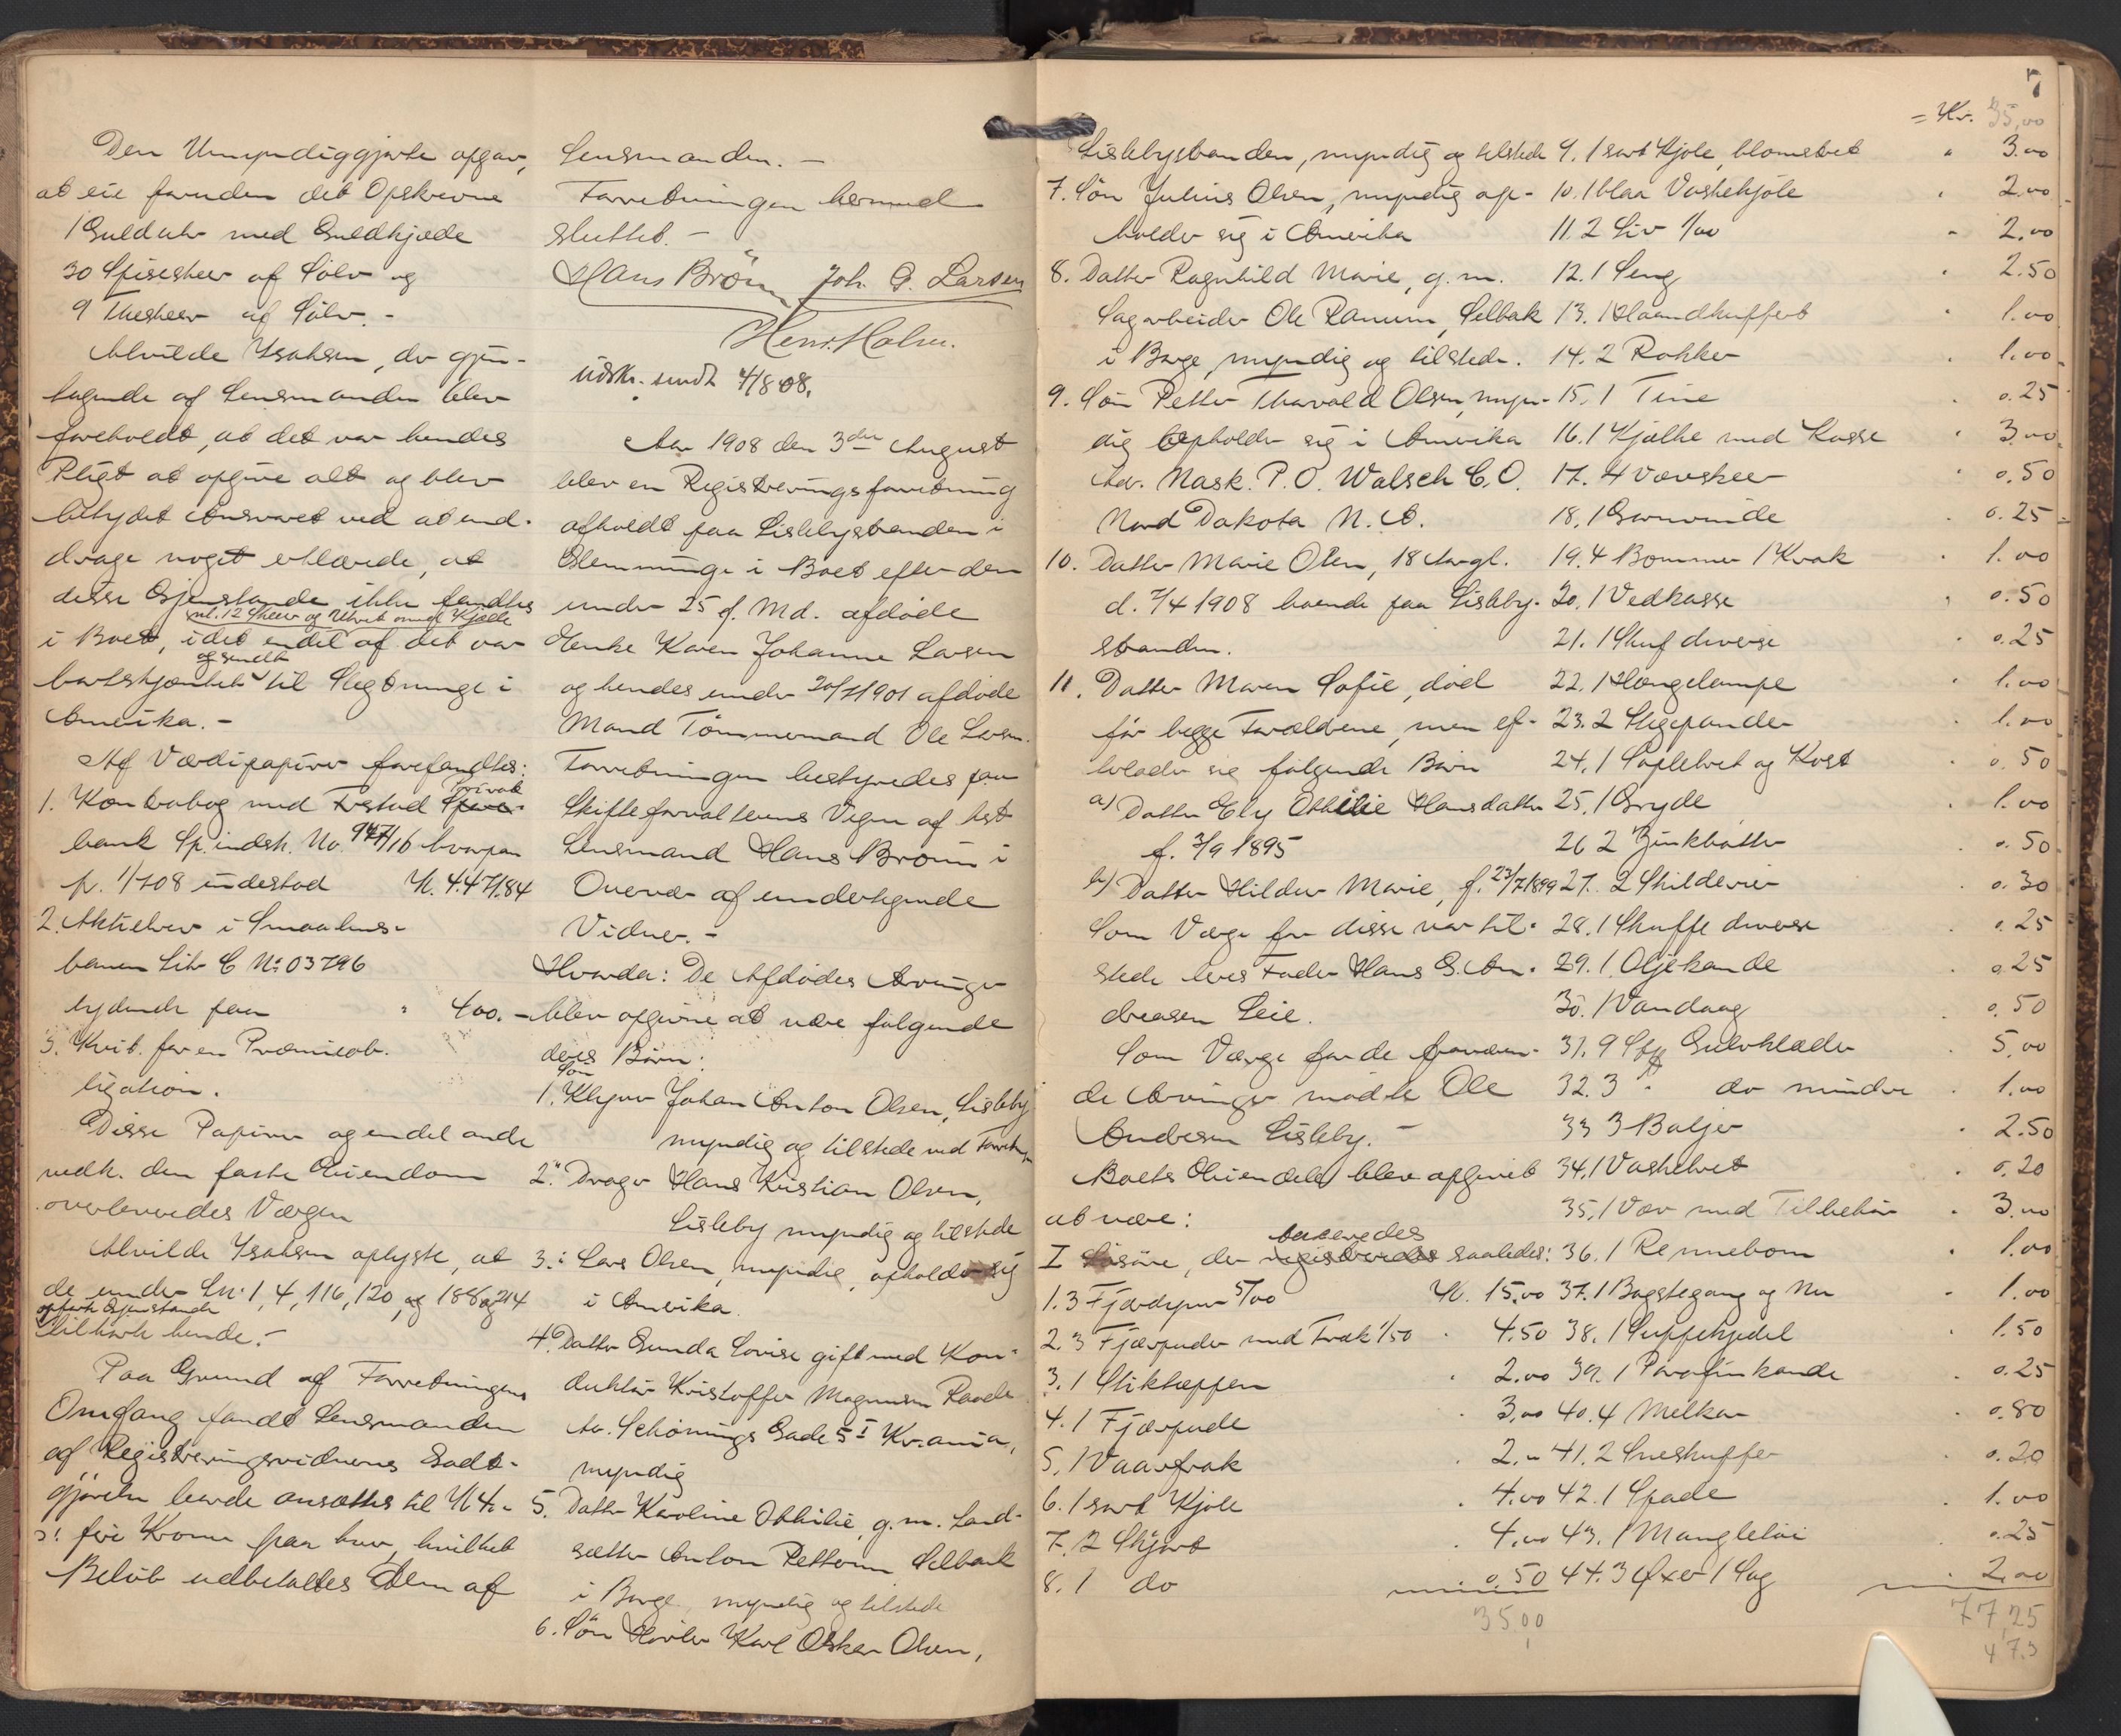 Den Umyndiggjorte opgav,
at eie foruden det Opskrevne
1 Gulduhr med Guldkjæde
30 Spiseskeer af Sølv og
9 Theskeer af Sølv. -
Alvilde Ysaksen, der gjen-
tagende af Lensmanden blev
foreholdt, at det var hendes
Pligt at opgive alt og blev
betydet Ansvaret ved at und-
drage noget erklærede, at
disse Gjenstande ikke fandtes
nl. 12 Skeer og Uhret med Kjæde
i Boet, idet endel af det var
og sendt
bortskjænket til Slegtninge i
Amerika. -
Af Værdipapirer forefandtes:
1. Kontrabog med Fr.stad Privat
bank Sp.indsk. No. 947/16 hvorpaa
pr. 1/1 08 indestod Kr. 4.471.84
2. Aktiebrev i Smaalens-
banen Litr C No 03796
lydende paa " 400. -
3. Kvit. for en Præmieob-
ligation.
Disse Papirer og endel andre
vedk. den faste Eiendom
overleveredes Værgen
Alvilde Ysaksen oplyste, at
de under Ln. 1, 4, 116, 120, og 188 og 214
opførte Gjenstande
tilhørte hende. -
Paa Grund af Forretningens
Omfang fandt Lensmanden
af Registreringsvidnernes Godt-
gjørelse burde ansættes til Kr 4. -
ɔ: fire Kroner paa hver, hvilket
Beløb udbetaltes dem af
Lensmanden. -
Forretningen hermed
sluttet. -
Hans Brøun Joh. G. Larsen
Henr. Holm.
Udskr. sendt 4/8 08.
Aar 1908 den 3die August
blev en Registreringsforretning
afholdt paa Lislebystranden i
Glemminge i Boet efter den
under 25 f. Md. afdøde
Enke Karen Johanne Larsen
og hendes under 20/7 1901 afdøde
Mand Tømmermand Ole Larsen.
Forretningen bestyredes paa
Skifteforvalterens Vegne af kst
Lensmand Hans Brøun i
Overvær af undertegnede
Vidner. -
Hvorda: De Afdødes Arvinger
blev opgivne at være følgende
deres Børn:
Søn
1. Klyver Johan Anton Olsen, Lisleby
myndig og tilstede ved Forretn.
2. " Drager Hans Kristian Olsen,
Lisleby myndig og tilstede
3. : Lars Olsen, myndig, opholder sig
i Amerika.
4. Datter Gunda Lovise gift med Kon-
duktør Kristoffer Magnusen
Av. Schønings Gade 5 I Kr.ania,
myndig
5. Datter Karoline Othilie, g. m. Land-
sætter Anton Pettersen Selbak
i Borge, myndig og tilstede
6. Søn Høvler Karl Oskar Olsen,
7
= Kr. 35,00
Lislebystranden, myndig og tilstede
7. Søn Julius Olsen, myndig op-
holder sig i Amerika
8. Datter Ragnhild Marie, g. m.
Sagarbeider Ole Ranum, Selbak
i Borge, myndig og tilstede.
9. Søn Petter Thorvald Olsen, myn-
dig Opholder sig i Amerika
Adr. Mask. P. O. Walsch C. O.
Nord Dakota N. A.
10. Datter Marie Olsen, 18 Aar gl.
d. 7/4 1908 boende paa Lisleby-
stranden.
11. Datter Maren Sofie, død
før begge Forældrene, men ef-
terlader sig følgende Børn
a) Datter Elly Othilie Hansdatter
f. 3/9 1895
b) Datter Hildur Marie, f. 23/7 1899
Som Værge for disse var til-
stede deres Fader Hans G. An-
dreasen Leie.
Som Værge for de fraværen-
de Arvinger mødte Ole
Andersen Lisleby. -
Boets Eiendele blev opgivet
at være:
taxeredes
I Løsøre, der registreredes saaledes:
1. 3 Fjærdyner 5/00 Kr. 15.00
2. 3 Fjærpuder med Træk 1/50 " 4.50
3. 1 Stiktæppen " 2.00
4. 1 Fjærpude " 3.00
5. 1 Vaarfrak " 2. "
6. 1 sort Kjole " 4.00
7. 2 Skjørt " 4.00
8. 1 do " 0.50
35,00
9. 1 sort Kjole, blomstret " 3.00
10. 1 blaa Vaskekjole " 2.00
11. 2 Liv 1/00 " 2.00
12. 1 Seng " 2.50
13. 1 Haandkuffert " 1.00
14. 2 Rokker " 1.00
15. 1 Tine " 0.25
16. 1 Kjælke med Kasse " 3.00
17. 4 Vævskeer " 0.50
18. 1 Garnvinde " 0.25
19. 4 Bommer 1 Krak " 1.00
20. 1 Vedkasse " 0.50
21. 1 Skuf diverse " 0.25
22. 1 Hængelampe " 1.00
23. 2 Stegepander " 1.00
24. 1 og Kost " 0.50
25. 1 Gryde " 1.00
26 2 Zinkbøtter " 0.50
27. 2 Skilderier " 0.30
28. 1 Skuffe diverse " 0.25
29. 1 Oljekande " 0.25
30. 1 Vandaag " 0.50
31. 9 Stk Gulvklæder " 5,00
32. 3 " do mindre " 1.00
33 3 Baljer " 2.50
34. 1 Vaskebret " 0.20
35. 1 Væv med Tilbehør " 3.00
36. 1 Rennebom " 1.00
37. 1 Bogstegang og " 1.00
38. 1 Suppekjedel " 1.50
39. 1 Parafinkande " 0.25
40. 4 Melkar " 0.80
41. 2 Sneskuffer " 0.20
42. 1 Spade " 1.00
43. 1 Mangletøi " 0.25
44. 3 Øxer 1 Sag " 2.00
77,25
47.5